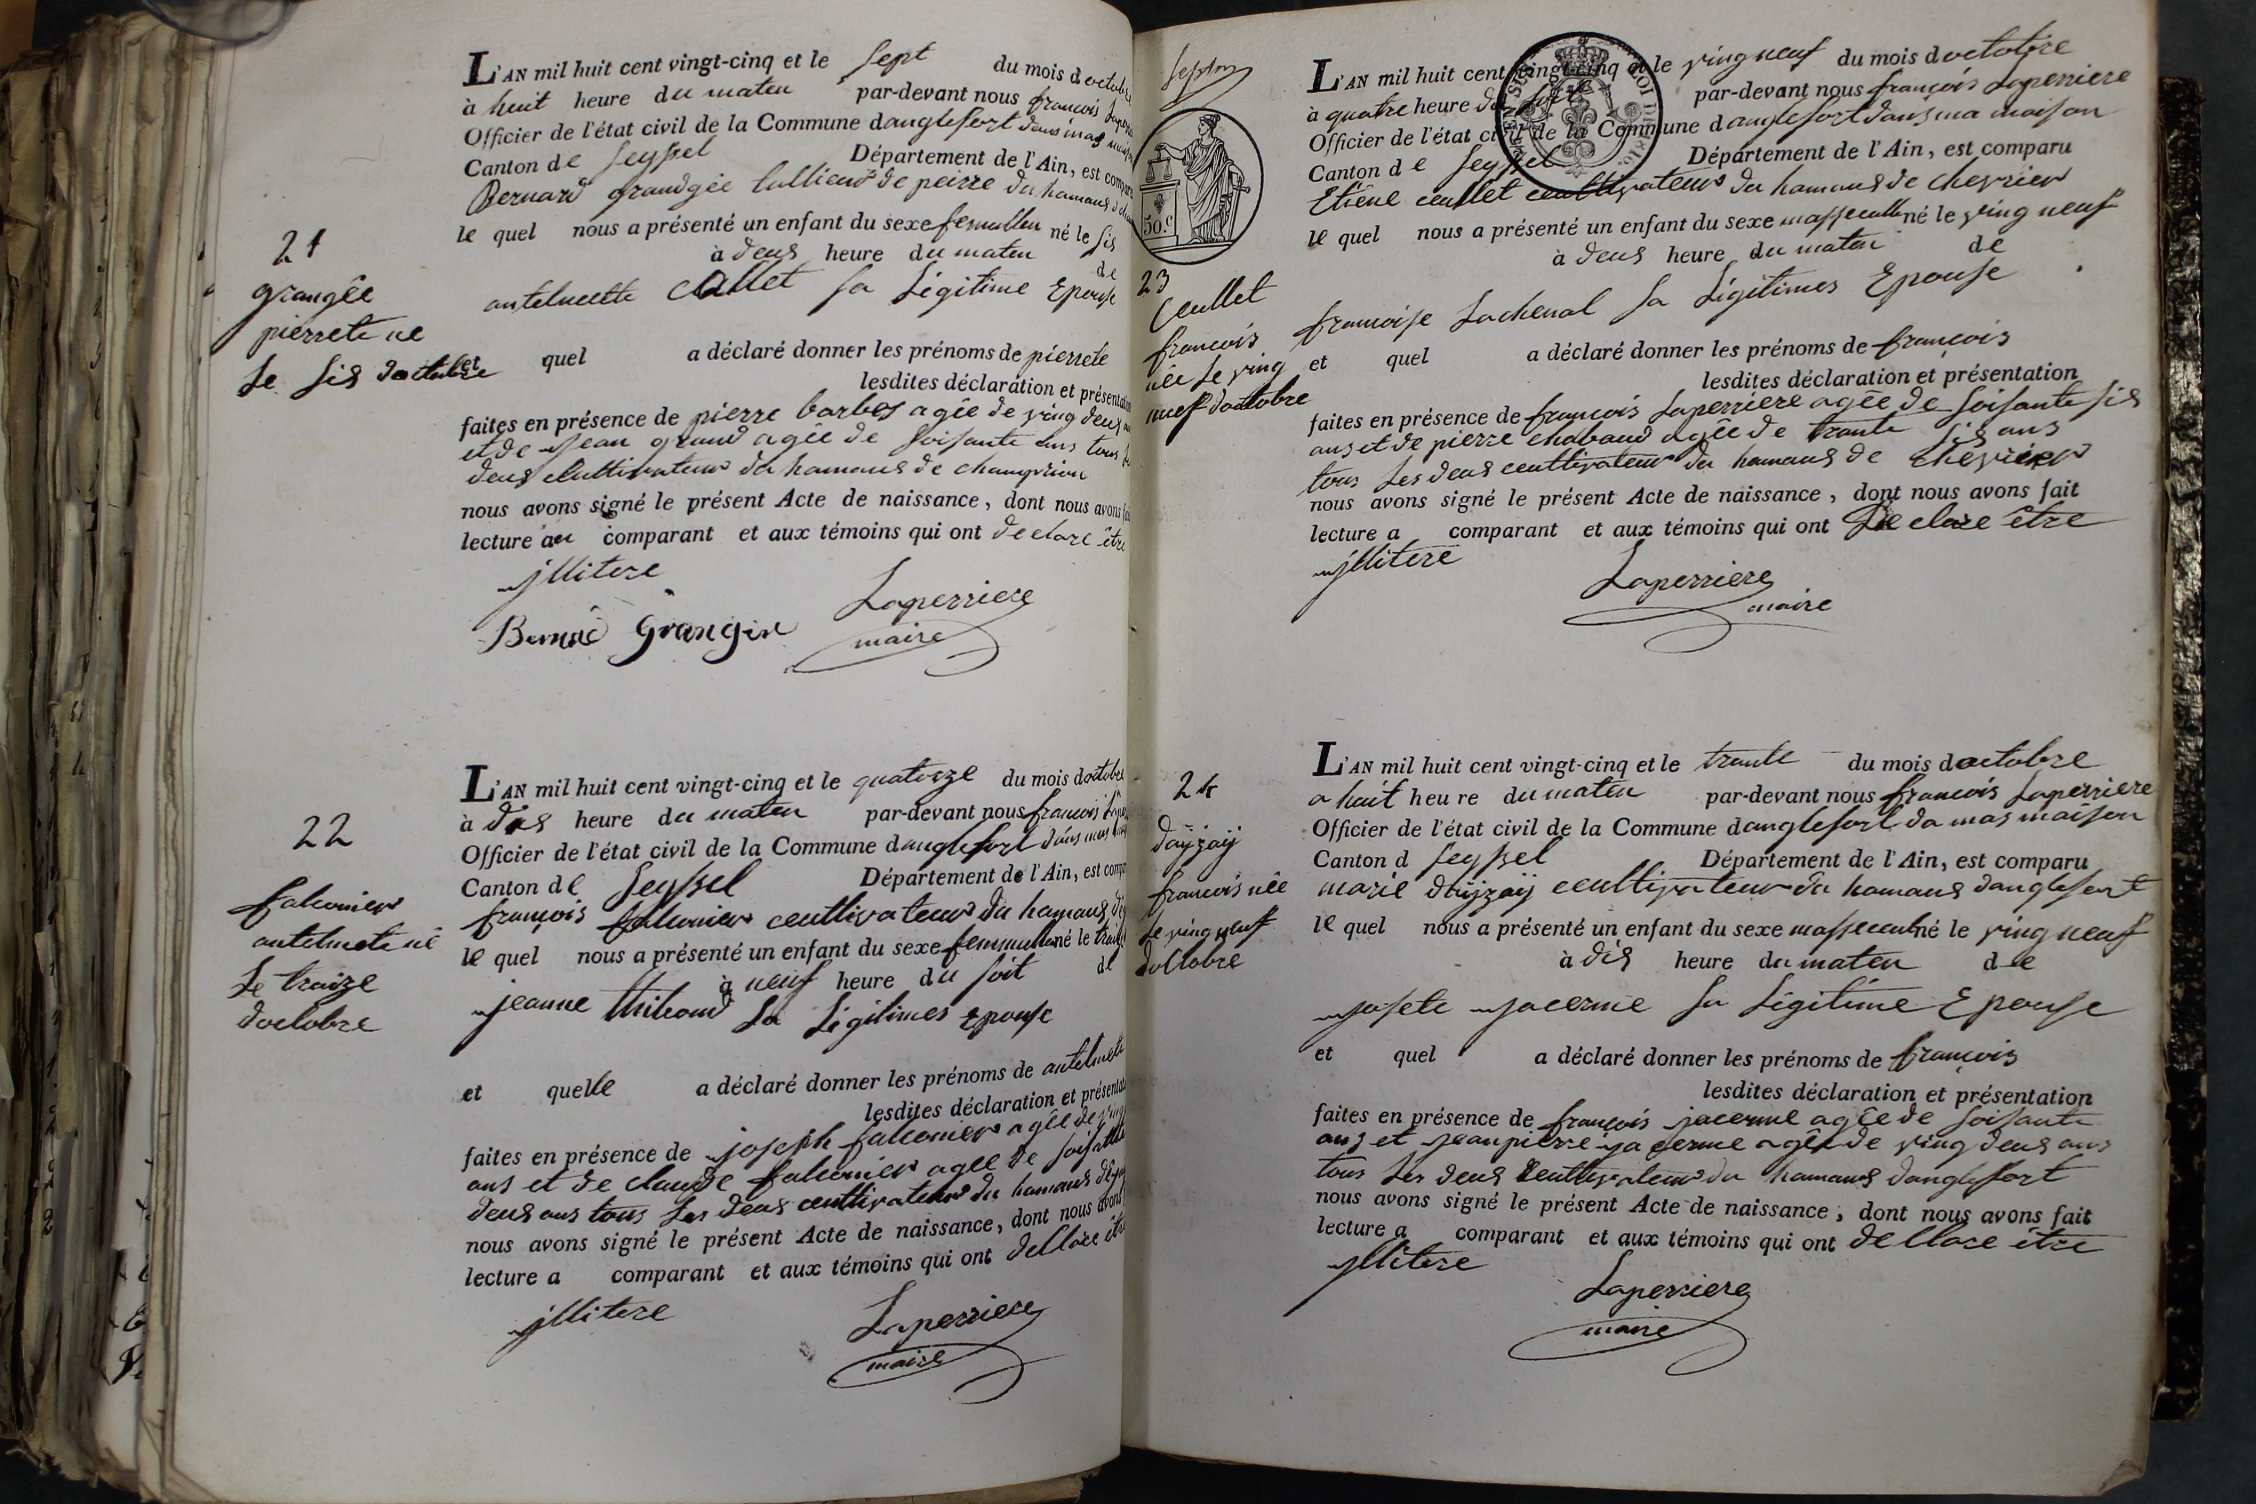 L'AN mil huit cent vingt-cinq et le sept du mois doctobre
à huit heure du maten par-devant nous francois
Officier de l'état civil de la Commune danglefort dans mas
Canton de Seyssel Département de l'Ain, est comparu
Bernard grandgée de peirre du hamaus
le quel nous a présenté un enfant du sexe femullen né le sis
à deus heure du maten de
antelmette Callet sa Légitime Epouse
et quel a déclaré donner les prénoms de pierrete
lesdites déclaration et présentation
faites en présence de pierre barbes agée de ving deus
et de jean grand agée de soisante ans tous
deus cultivateur du hamaus de champrion
nous avons signé le présent Acte de naissance, dont nous avons
lecture au comparant et aux témoins qui ont declare être
jllitere
Laperriere
maire
Bernad Grangin
21
grangée
pierrete né
Le sis doctobre
L'AN mil huit cent vingt-cinq et le quatorze du mois doctobre
à dis heure du maten par-devant nous francois
Officier de l'état civil de la Commune danglefort dans mas
Canton de Seyssel Département de l'Ain, est
françois falconier ceultivateur du hamaus
le quel nous a présenté un enfant du sexe femmullen né le
à neuf heure du soit de
jeanne thibaud sa Légitimes epouse
et quelle a déclaré donner les prénoms de antelmete
lesdites déclaration et présentation
faites en présence de joseph falconier agée de ving
ans et de claude falconier agee de soisante
deus ans tous Les deus ceultivateur du hamaus
nous avons signé le présent Acte de naissance, dont nous avons
lecture a comparant et aux témoins qui ont dellare être
jllitere
Laperriere
maire
22
falconier
antelmete né
Le traize
doctobre
L'AN mil huit cent vingt-cinq et le ving neuf du mois doctobre
à quatre heure du par-devant nous françois Laperriere
Officier de l'état civil de la Commune danglefort dans ma maison
Canton de Seyssel Département de l'Ain, est comparu
Etiene ceullet ceultivateur du hamaus de chevrier
le quel nous a présenté un enfant du sexe masseculle né le ving neuf
à deus heure du maten de
francoise Lachenal sa Légitimes Epouse
et quel a déclaré donner les prénoms de françois
lesdites déclaration et présentation
faites en présence de françois Laperriere agée de soisante sis
ans et de pierre chabaud agée de trante sis ans
tous Les deus ceultivateur du hamaus de chevrier
nous avons signé le présent Acte de naissance, dont nous avons fait
lecture a comparant et aux témoins qui ont declare être
jllitere
Laperriere
maire
50 c.
23
Ceullet
francois
née Le ving
neuf doctobre
L'AN mil huit cent vingt-cinq et le trante du mois doctobre
a huit heure du maten par-devant nous françois Laperriere
Officier de l'état civil de la Commune danglefort da mas maison
Canton d Seyssel Département de l'Ain, est comparu
marie dayzaij ceultivateur du hamaus danglefort
le quel nous a présenté un enfant du sexe masseculle né le ving neuf
à dis heure du maten de
josete jacerme sa Légitime Epouse
et quel a déclaré donner les prénoms de françois
lesdites déclaration et présentation
faites en présence de françois jacerme agée de soisante
ans et jeanpierre jacerme agée de ving deus ans
tous Les deus ceultivateur du hamaus danglefort
nous avons signé le présent Acte de naissance, dont nous avons fait
lecture a comparant et aux témoins qui ont dellare être
jllitere
Laperriere
maire
24
dayzaij
francois née
Le ving neuf
doctobre